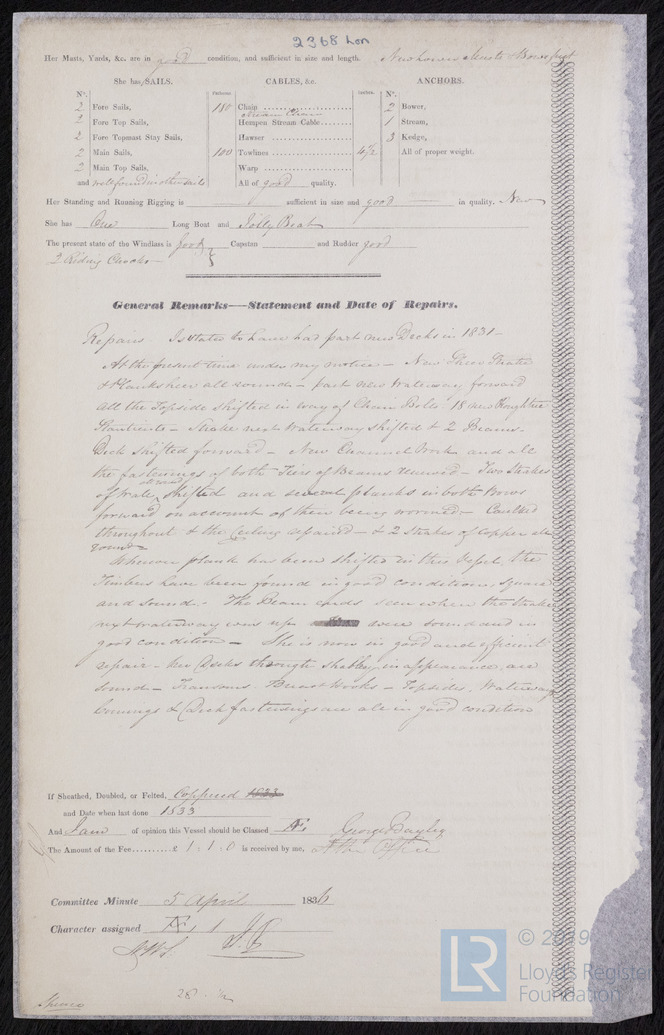 2368 Lon
Her Masts, Yards, &c. are in good condition, and sufficient in size and length. New lower Masts & Bowsprit
She has SAILS. CABLES, &c. ANCHORS.
N°. Fathoms. Inches. N°.
2 Fore Sails, 180 Chain 2 Bower,
2 Fore Top Sails, Stream Chain Hempen Stream Cable 1 Stream,
2 Fore Topmast Stay Sails, Hawser 3 Kedge,
2 Main Sails, 100 Towlines 4½ All of proper weight.
2 Main Top Sails, Warp
and well found in other sails All of good quality.
Her Standing and Running Rigging is sufficient in size and good in quality. New
She has One Long Boat and Jolly Boat
The present state of the Windlass is good Capstan and Rudder good
2 Riding Chocks
General Remarks—Statement and Date of Repairs.
Repairs. Is stated to have had part new Decks in 1831 –
At the present time under my notice – New Sheer Strake
& Plankshear all round – part new Waterway forward
all the Topside shifted in way of Chain Bolts 18 new
Stantients – Strake next Waterway shifted & 2 Beams.
Deck shifted forward – New Channel Work and all
the fastenings of both Tiers of Beams renewed – Two Strakes
of Wale all round shifted and several planks in both bows
forward on account of their being wormed – Caulked
throughout & the Ceiling repaired – & 2 Strakes of Copper all
round –
Wherever plank has been shifted in this Vessel, the
Timbers have been found in good condition, square
and sound. The Beam ends seen when the Strake
next waterway was up were sound and in
good condition – She is now in good and efficient
repair – her Decks though shabby in appearance are
sound – Transoms. Breast Hooks – Topsides, Waterways
Comings & Deck fastenings are all in good condition
If Sheathed, Doubled, or Felted, Coppered 1833
and Date when last done 1833
And I am of opinion this Vessel should be Classed Æ 1 George Bayley
The Amount of the Fee £ 1 . 1 . 0 is received by me, At the Office
Committee Minute 5 April 1836
Character assigned Æ 1
© 2019
LR Lloyd's Register
Foundation